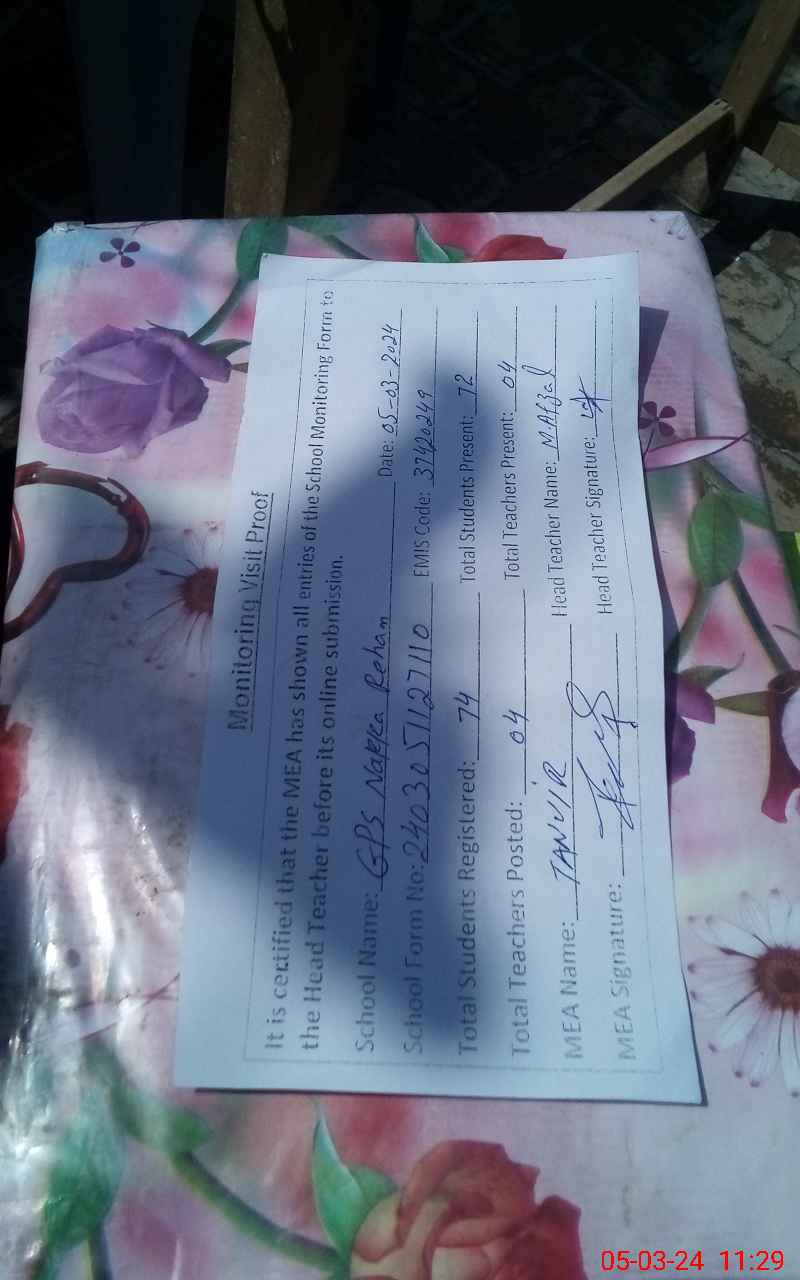 Monitoring Visit Proof
It is certified that the MEA has shown all entries of the School Monitoring Form to
the Head Teacher before its online submission.
School Name: GPS Nakka Rehan Date: 05-03-2024
School Form No: 2403051127110 EMIS Code: 37420249
Total Students Registered: 74 Total Students Present: 72
Total Teachers Posted: 04 Total Teachers Present: 04
MEA Name: TANVIR Head Teacher Name: M.Afzal
MEA Signature: Head Teacher Signature:
05-03-24 11:29